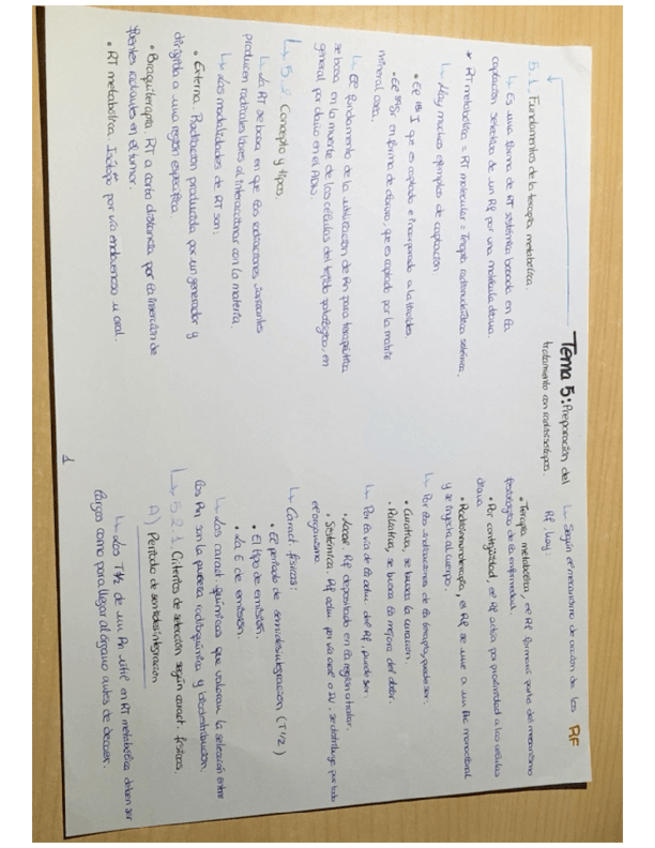 Tema 5: Preparación del
tratamiento con radioisótopos.
5.1. Fundamentos de la terapia metabólica.
↳ Es una forma de RT sistémica basada en la
captación selectiva de un RF por una molécula diana.
* RT metabólica = RT molecular = Terapia radionucleídica selectiva.
↳ Hay muchos ejemplos de captación
• El ¹³¹I que es captado e incorporado a la tiroides.
• El ⁸⁹Sr en forma de cloruro, que es captado por la matriz
mineral ósea.
↳ El fundamento de la utilización de Rn para terapéutica
se basa en la muerte de las células del tejido patológico, en
general por daño en el ADN.
↳ 5.2 Concepto y tipos.
↳ La RT se basa en que las radiaciones ionizantes
producen radicales libres al interaccionar con la materia.
↳ Las modalidades de RT son:
• Externa. Radiación producida por un generador y
dirigida a una región específica.
• Braquiterapia. RT a corta distancia por la inserción de
fuentes radiantes en el tumor.
• RT metabólica. Isótopo por vía endovenosa u oral.
1
↳ Según el mecanismo de acción de los RF
RF, hay:
• Terapia metabólica, el RF formará parte del mecanismo
fisiológico de la enfermedad.
• Por contigüidad, el RF actúa por proximidad a las células
diana.
• Radioinmunoterapia, el RF se une a un Ac monoclonal
y se inyecta al cuerpo.
↳ Por las indicaciones de la terapia, puede ser:
• Curativa, se busca la curación.
• Paliativa, se busca la mejora del dolor.
↳ Por la vía de la adm. del RF, puede ser:
• Local. RF depositado en la región a tratar.
• Sistémica. RF adm. por vía oral o IV, se distribuye por todo
el organismo.
↳ Caract. físicas:
• El periodo de semidesintegración (T1/2)
• El tipo de emisión.
• La E de emisión.
↳ Las caract. químicas que valoran la selección entre
los Rn son la pureza radioquímica y biodistribución.
↳ 5.2.1. Criterios de selección según caract. físicas.
A) Periodo de semidesintegración
↳ Los T1/2 de un Rn útil en RT metabólica deben ser
largos como para llegar al órgano antes de decaer.